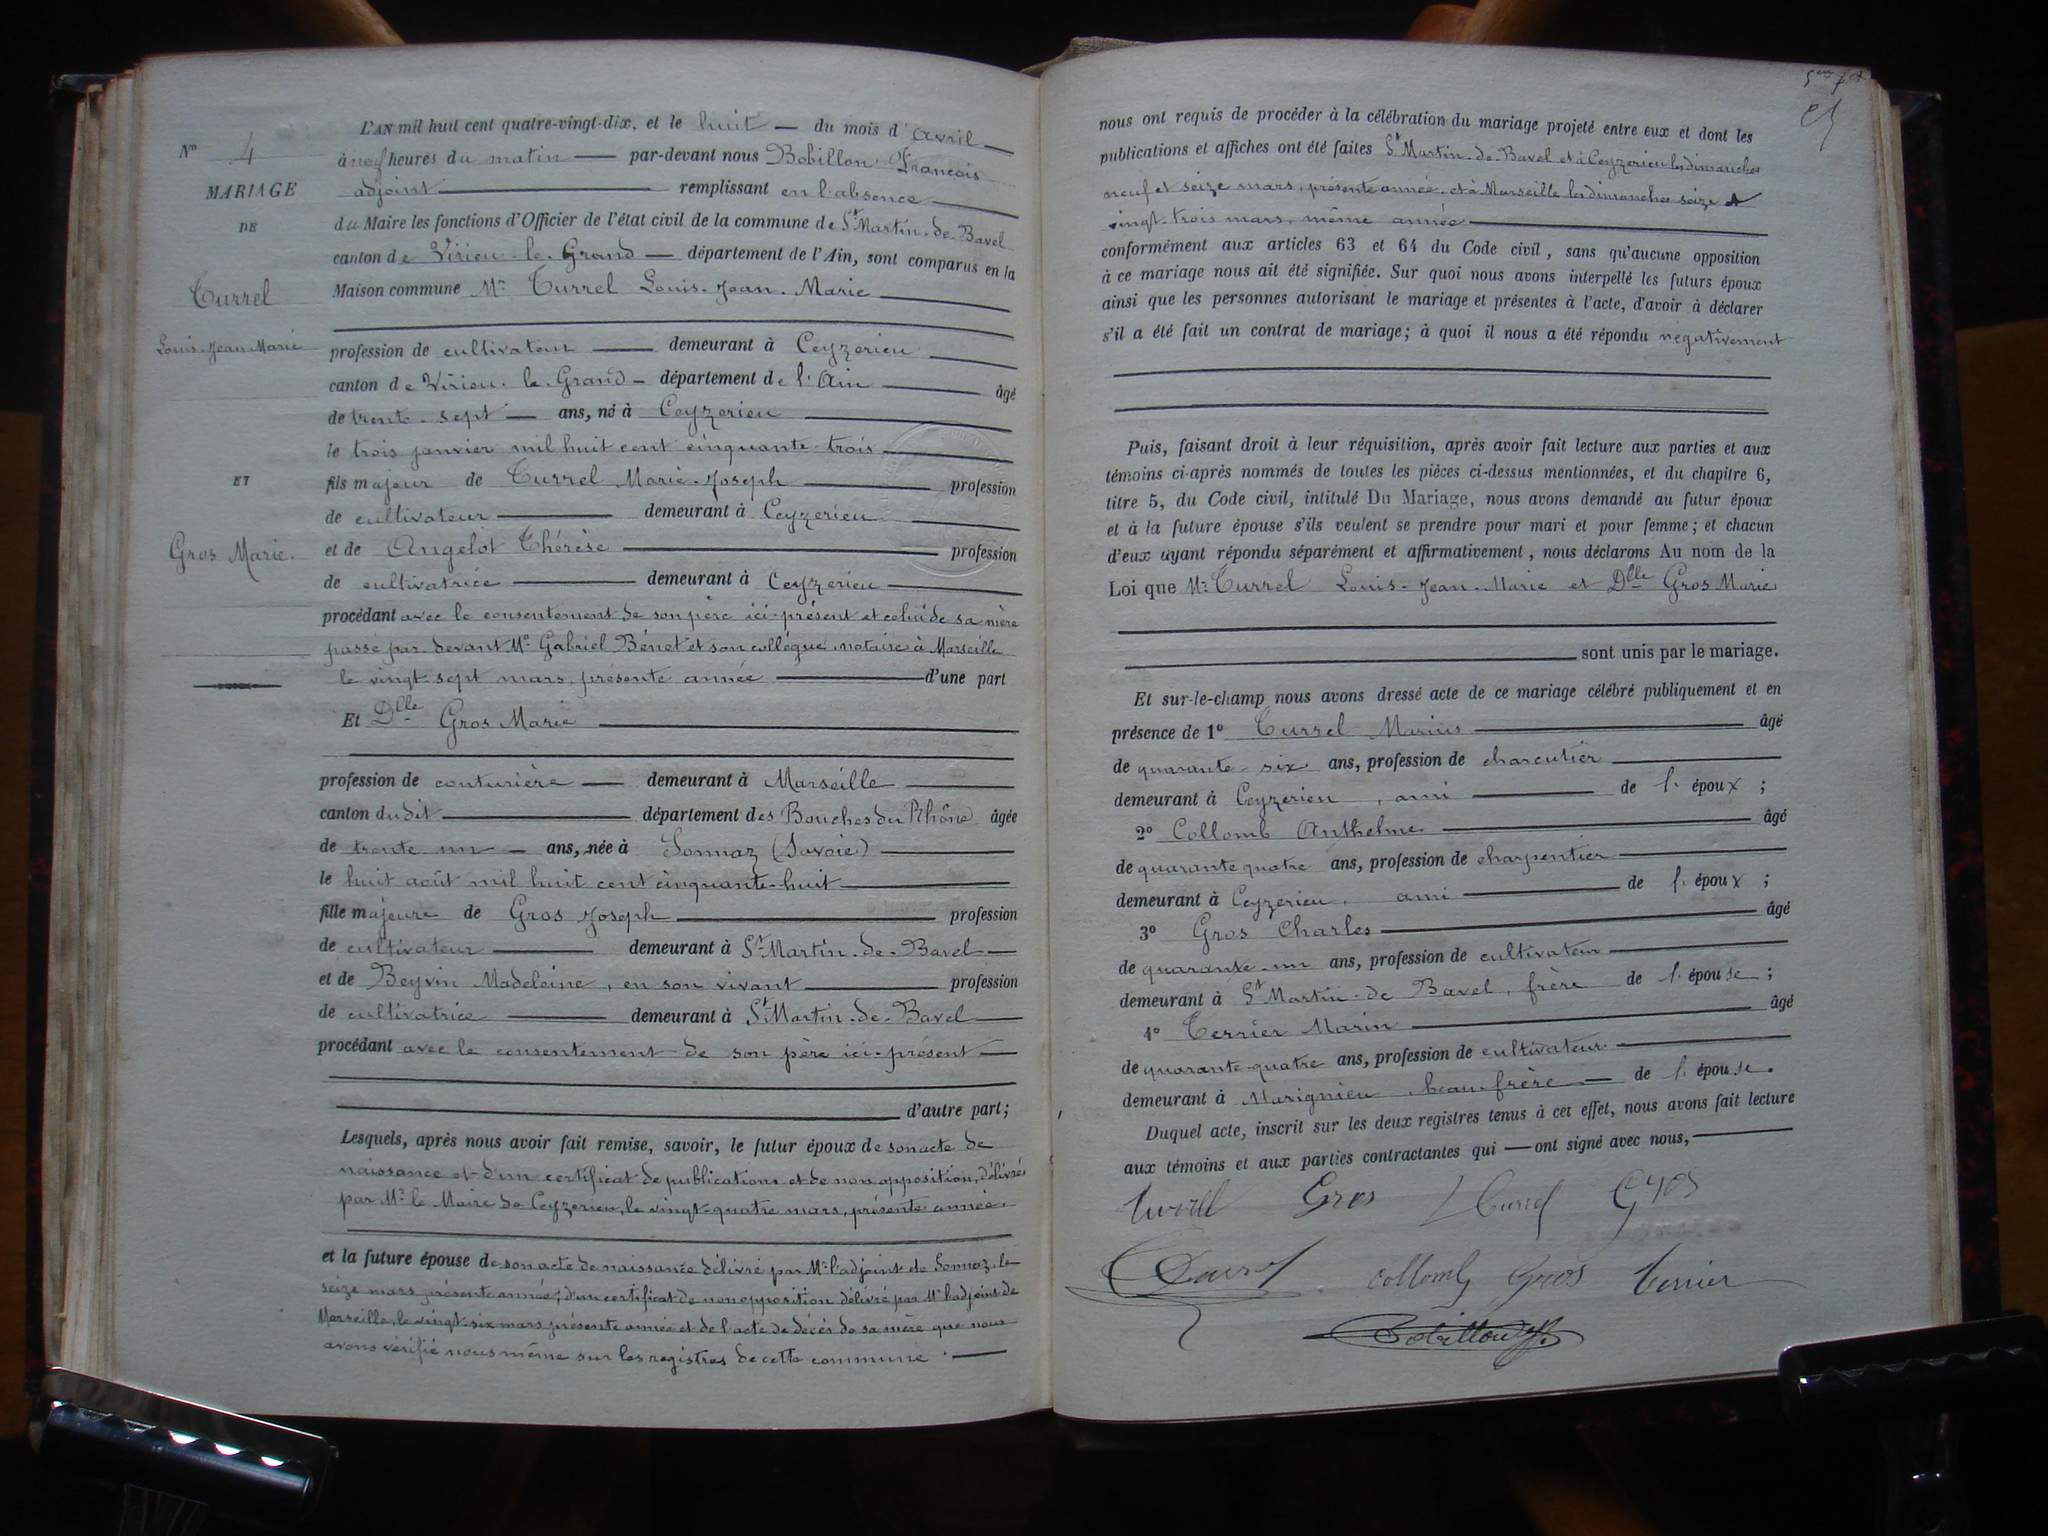 N° 4
MARIAGE
DE
Turrel
Louis-Jean-Marie
ET
Gros Marie.
L'AN mil huit cent quatre-vingt-dix, et le huit du mois d'avril
à neuf heures du matin par-devant nous Bobillon François
adjoint remplissant en l'absence
du Maire les fonctions d'Officier de l'état civil de la commune de St Martin-de-Bavel
canton de Virieu-le-Grand département de l'Ain, sont comparus en la
Maison commune Mr Turrel Louis-Jean-Marie
profession de cultivateur demeurant à Ceyzerieu
canton de Virieu-le-Grand département de l'Ain âgé
de trente-sept ans, né à Ceyzerieu
le trois janvier mil huit cent cinquante-trois
fils majeur de Turrel Marie-Joseph profession
de cultivateur demeurant à Ceyzerieu
et de Angelot Thérèse profession
de cultivatrice demeurant à Ceyzerieu
procédant avec le consentement de son père ici-présent et celui de sa mère
passé par-devant Me Gabriel Bénet et son collègue notaire à Marseille
le vingt-sept mars, présente année d'une part
Et Dlle Gros Marie
profession de couturière demeurant à Marseille
canton dudit département des Bouches du Rhône âgée
de trente-un ans, née à Sonnaz (Savoie)
le huit août mil huit cent cinquante-huit
fille majeure de Gros Joseph profession
de cultivateur demeurant à St-Martin-de-Bavel
et de Beyvin Madeleine, en son vivant profession
de cultivatrice demeurant à St-Martin-de-Bavel
procédant avec le consentement de son père ici-présent
d'autre part;
Lesquels, après nous avoir fait remise, savoir, le futur époux de son acte de
naissance et d'un certificat de publications et de non opposition, délivrés
par Mr le Maire de Ceyzerieu, le vingt-quatre mars, présente année.
et la future épouse de son acte de naissance délivré par Mr l'adjoint de Sonnaz, le
seize mars présente année, d'un certificat de non opposition délivré par Mr l'adjoint de
Marseille, le vingt-six mars présente année et de l'acte de décès de sa mère que nous
avons vérifié nous même sur les registres de cette commune.
nous ont requis de procéder à la célébration du mariage projeté entre eux et dont les
publications et affiches ont été faites St Martin-de-Bavel et à Ceyzerieu les dimanches
neuf et seize mars, présente année, et à Marseille les dimanches seize et
vingt-trois mars, même année
conformément aux articles 63 et 64 du Code civil, sans qu'aucune opposition
à ce mariage nous ait été signifiée. Sur quoi nous avons interpellé les futurs époux
ainsi que les personnes autorisant le mariage et présentes à l'acte, d'avoir à déclarer
s'il a été fait un contrat de mariage; à quoi il nous a été répondu négativement
Puis, faisant droit à leur réquisition, après avoir fait lecture aux parties et aux
témoins ci-après nommés de toutes les pièces ci-dessus mentionnées, et du chapitre 6,
titre 5, du Code civil, intitulé Du Mariage, nous avons demandé au futur époux
et à la future épouse s'ils veulent se prendre pour mari et pour femme; et chacun
d'eux ayant répondu séparément et affirmativement, nous déclarons Au nom de la
Loi que Mr Turrel Louis-Jean-Marie et Dlle Gros Marie
sont unis par le mariage.
Et sur-le-champ nous avons dressé acte de ce mariage célébré publiquement et en
présence de 1° Turrel Marius âgé
de quarante-six ans, profession de charcutier
demeurant à Ceyzerieu, ami de l'époux;
2° Collomb Anthelme âgé
de quarante quatre ans, profession de charpentier
demeurant à Ceyzerieu, ami de l'époux;
3° Gros Charles âgé
de quarante-un ans, profession de cultivateur
demeurant à St Martin-de-Bavel, frère de l'épouse;
4° Terrier Marin âgé
de quarante-quatre ans, profession de cultivateur
demeurant à Marignieu beau-frère de l'épouse.
Duquel acte, inscrit sur les deux registres tenus à cet effet, nous avons fait lecture
aux témoins et aux parties contractantes qui ont signé avec nous,
Turrel Gros Turrel Gros
Collomb Gros Terrier
Bobillon